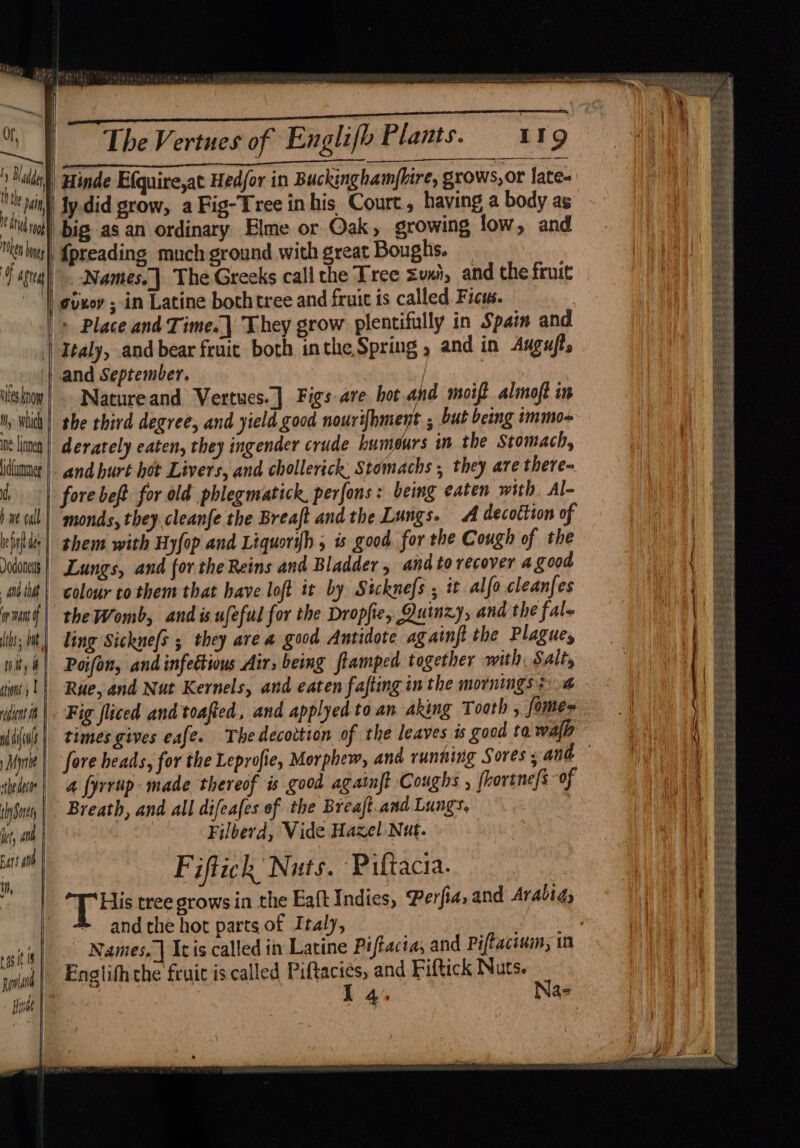 The Vertues of Engliſh Plants. 119
Hinde Eſquire,at Hedſor in Buckinghamſhire, grows,or late-
ly did grow, a Fig-Tree in his Court, having a body as
big as an ordinary Elme or Oak, growing low, and
ſpreading much ground with great Boughs.
Names.] The Greeks call the Tree Συκῆ, and the fruit
σῦκον; in Latine both tree and fruit is called Ficus.
Place and Time.] They grow plentifully in Spain and
Italy, and bear fruit both in the Spring, and in Auguſt,
and September.
Nature and Vertues.] Figs are hot and moiſt almoſt in
the third degree, and yield good nouriſhment; but being immo-
derately eaten, they ingender crude humours in the Stomach,
and hurt hot Livers, and chollerick Stomachs; they are there-
fore beſt for old phlegmatick perſons: being eaten with Al-
monds, they cleanſe the Breaſt and the Lungs. A decoction of
them with Hyſop and Liquoriſh, is good for the Cough of the
Lungs, and for the Reins and Bladder, and to recover a good
colour to them that have loſt it by Sickneſs; it alſo cleanſes
the Womb, and is uſeful for the Dropſie, Quinzy, and the fal-
ling Sickneſs; they are a good Antidote againſt the Plague,
Poiſon, and infectious Air, being ſtamped together with Salt,
Rue, and Nut Kernels, and eaten faſting in the mornings: a
Fig ſliced and toaſted, and applyed to an aking Tooth, ſome-
times gives eaſe. The decoction of the leaves is good to waſh
ſore heads, for the Leproſie, Morphew, and running Sores; and
a ſyrrup made thereof is good againſt Coughs, ſhortneſs of
Breath, and all diſeaſes of the Breaſt and Lungs.
Filberd, Vide Hazel Nut.
Fiſtick Nuts. Piſtacia.
THis tree grows in the Eaſt Indies, Perſia, and Arabia,
and the hot parts of Italy,
Names.] It is called in Latine Piſtacia, and Piſtacium, in
Engliſh the fruit is called Piſtacies, and Fiſtick Nuts.
I 4. Na-